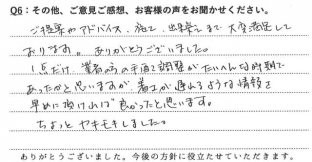 Q6：その他、ご意見ご感想、お客様の声をお聞かせください。
ご提案やアドバイス、施工、出来栄えまで大変満足して
おります。ありがとうございました。
1点だけ、業者の手配と調整がたいへんな時期で
あったかと思いますが、着工が遅れるような情報を
早めに頂ければ良かったと思います。
ちょっとヤキモキしました。
ありがとうございました。今後の方針に役立たせていただきます。